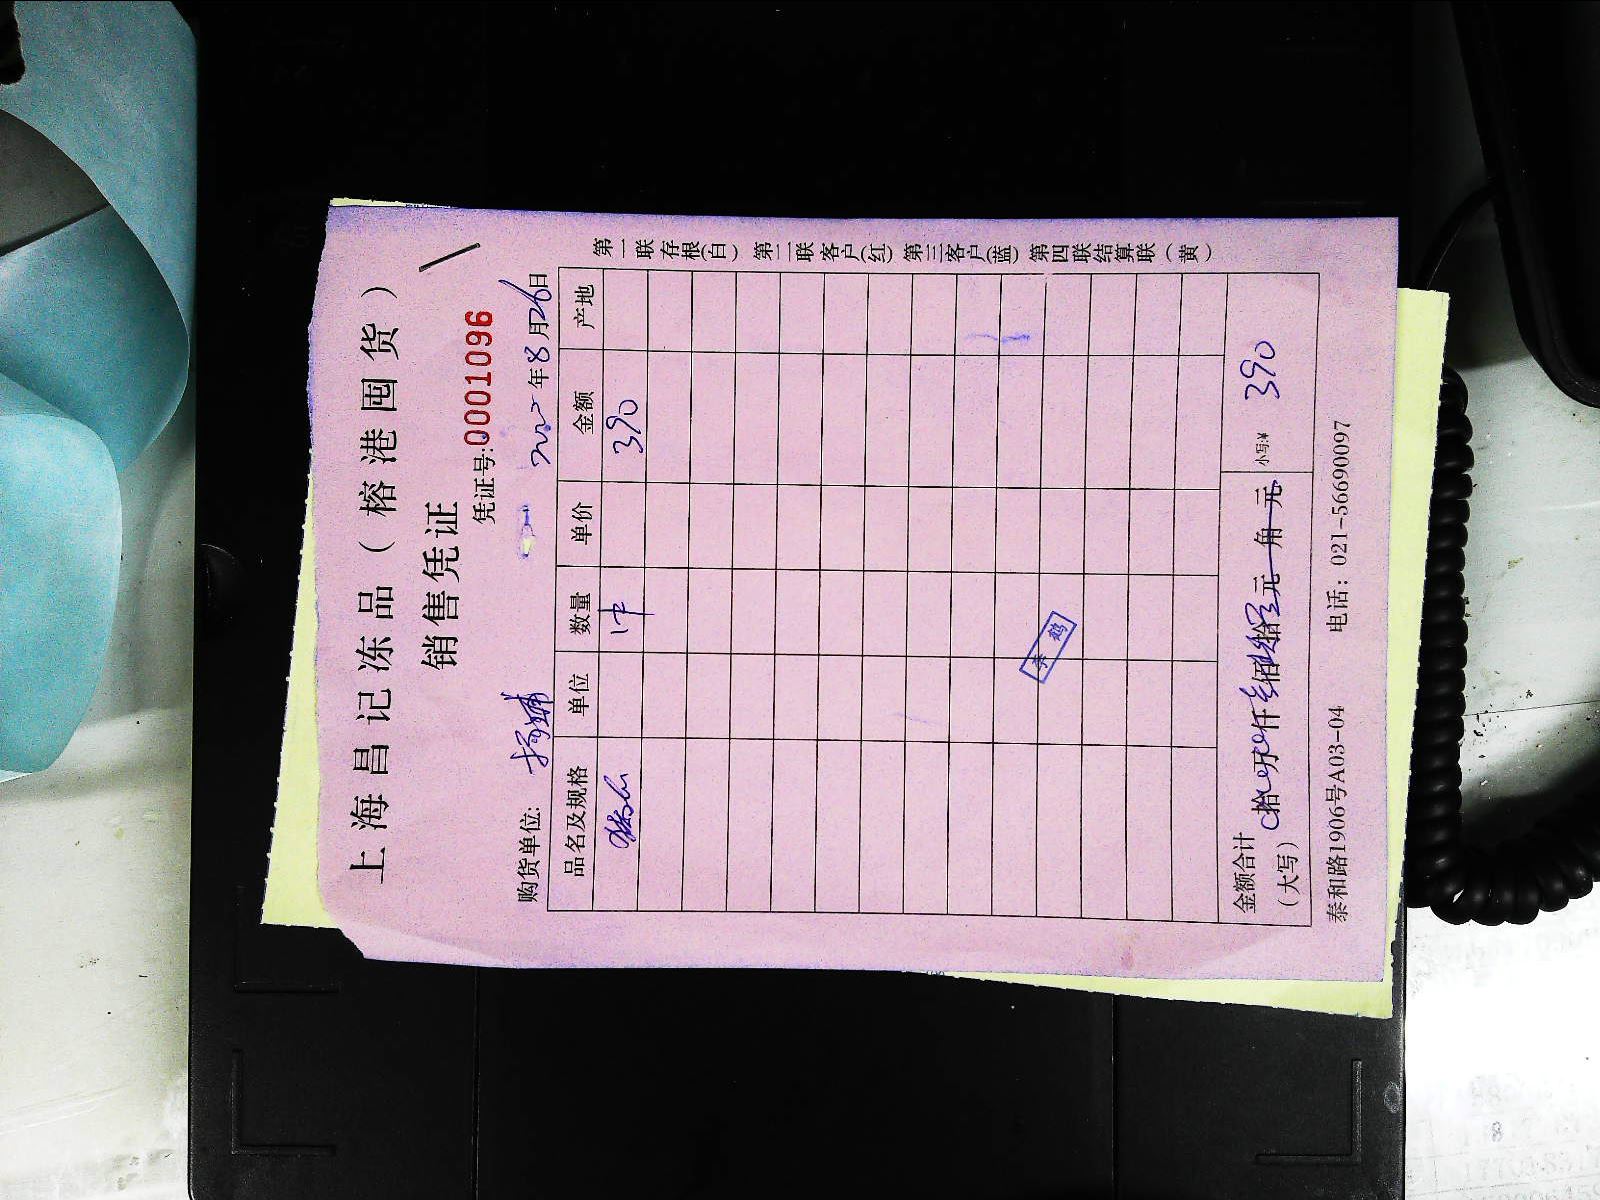 上海昌记冻品（榕港囤货）
销售凭证
凭证号:0001096
购货单位: 2022年8月26日
品名及规格 单位 数量 单价 金额 产地
1件 390
金额合计（大写） 拾 万 仟 佰 拾 元 角 元 小写:¥ 390
泰和路1906号A03-04 电话：021-56690097
第一联存根(白) 第二联客户(红) 第三客户(蓝) 第四联结算联（黄）